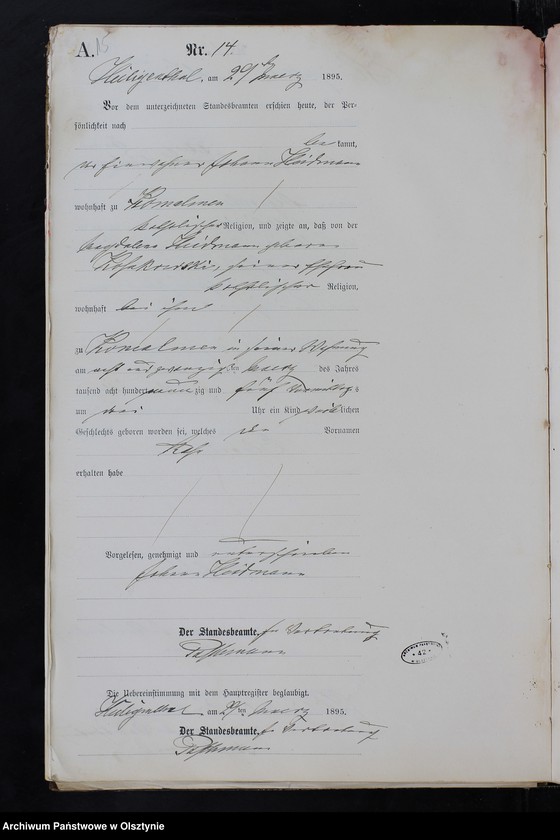 A. 15
Nr. 14.
Heiligenthal, am 29ten Maerz 1895.
Vor dem unterzeichneten Standesbeamten erschien heute, der Per-
sönlichkeit nach
be kannt,
der Einwohner Johann Heidmann
wohnhaft zu Komalmen
katholischer Religion, und zeigte an, daß von der
Magdalena Heidmann geborne
seiner Ehefrau
katholischer Religion,
wohnhaft bei ihm
zu Komalmen in seiner Wohnung
am acht und zwanzigsten Maerz des Jahres
tausend acht hundert neun zig und fünf Vormittags
um drei Uhr ein Kind weiblichen
Geschlechts geboren worden sei, welches den Vornamen
Rosa
erhalten habe
Vorgelesen, genehmigt und unterschrieben
Johann Heidmann
Der Standesbeamte. in Vertretung
Die Uebereinstimmung mit dem Hauptregister beglaubigt.
Heiligenthal am 29ten Maerz 1895.
Der Standesbeamte. in Vertretung
42
Archiwum Państwowe w Olsztynie